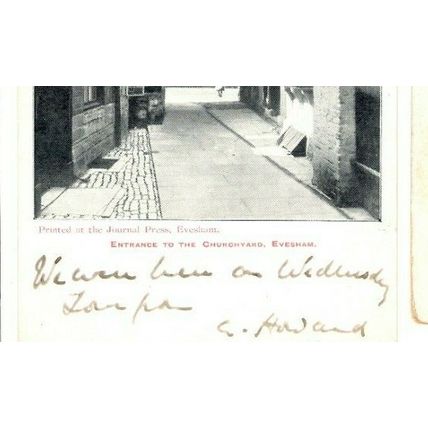 Printed at the Journal Press, Evesham.
ENTRANCE TO THE CHURCHYARD, EVESHAM.
We were here on Wednesday